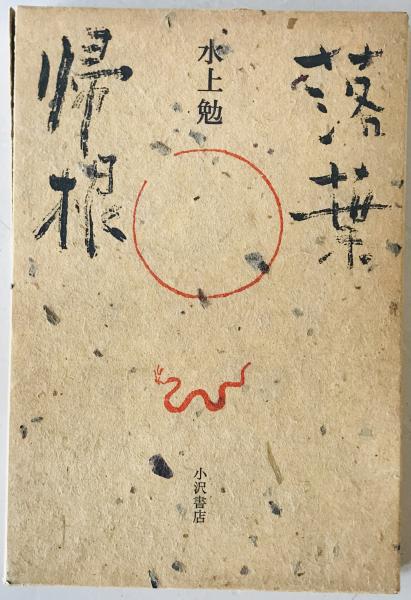 落葉
帰根
水上勉
小沢書店